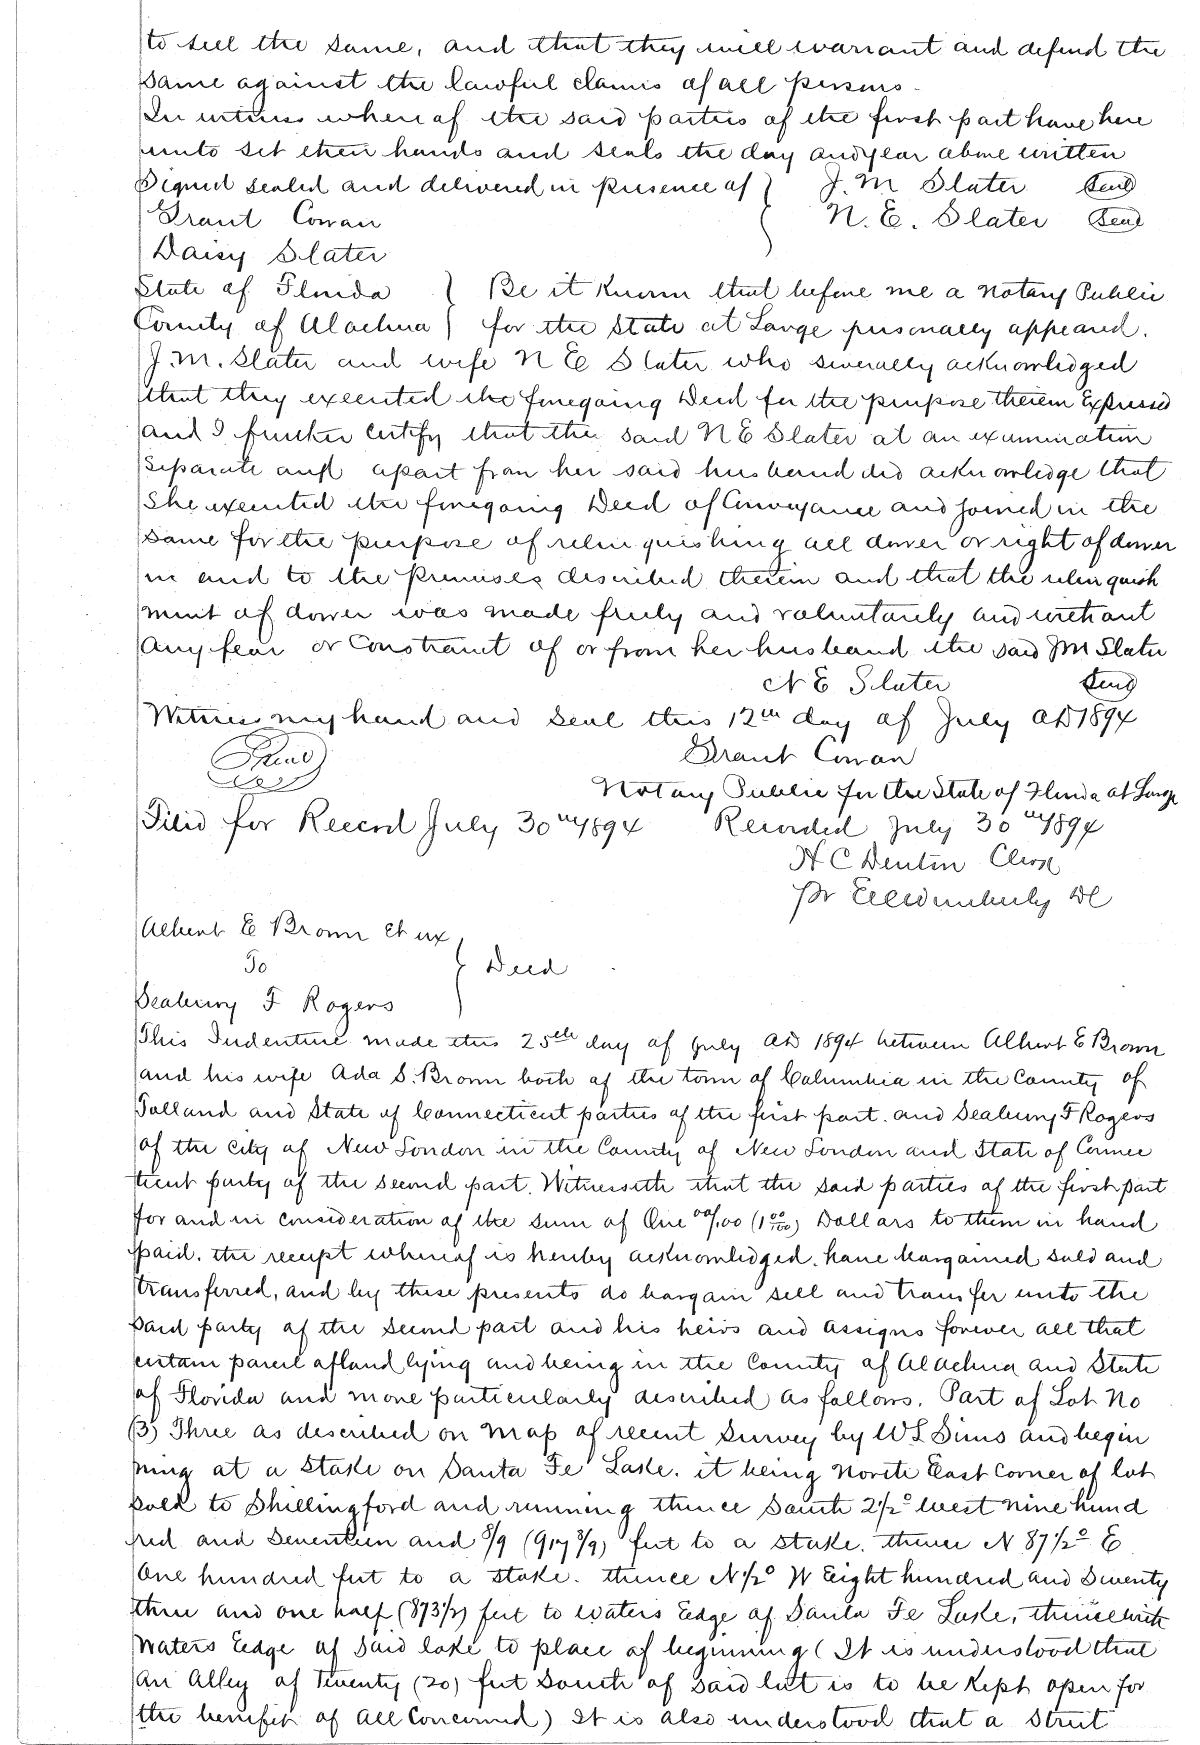 to sell the same, and that they will warrant and defend the
same against the lawful claims of all persons.
In witness whereof the said parties of the first part have here
unto set their hands and seals the day and year above written
Signed sealed and delivered in presence of } J. M Slater Seal
Grant Cowan N. E. Slater Seal
Daisy Slater
State of Florida } Be it Known that before me a Notary Public
County of Alachua } for the State at Large personally appeared.
J. M. Slater and wife N E Slater who severally acknowledged
that they executed the foregoing Deed for the purpose therein Expressed
and I further certify that the said N E Slater at an examination
separate and apart from her said husband did acknowledge that
She executed the foregoing Deed of Conveyance and joined in the
same for the purpose of relinquishing all dower or right of dower
in and to the premises described therein and that the relinquish
ment of dower was made freely and voluntarily and without
any fear or Constraint of or from her husband the said JM Slater
N E Slater Seal
Witness my hand and seal this 12th day of July AD 1894
Seal Grant Cowan
Notary Public for the State of Florida at Large
Filed for Record July 30th 1894 Recorded July 30th 1894
H C Denton Clerk
Pr EEWimberly DC
Albert E Brown et ux
To } Deed
Seabury F Rogers
This Indenture made this 25th day of July AD 1894 between Albert E Brown
and his wife Ada S. Brown both of the town of Columbia in the County of
Tolland and State of Connecticut parties of the first part. and Seabury F Rogers
of the city of New London in the County of New London and State of Connec
ticut party of the second part. Witnesseth that the said parties of the first part
for and in consideration of the sum of One 00/100 (1 00/100) Dollars to them in hand
paid. the receipt whereof is hereby acknowledged. have bargained sold and
transferred, and by these presents do bargain sell and transfer unto the
said party of the second part and his heirs and assigns forever all that
certain parcel of land lying and being in the County of Alachua and State
of Florida and more particularly described as follows. Part of Lot No
(3) Three as described on map of recent survey by W L Sims and begin
ning at a stake on Santa Fe Lake. it being North East corner of lot
sold to Shillingford and running thence South 2 1/2° West nine hund
red and Seventeen and 8/9 (917 8/9) feet to a stake. thence N 87 1/2° E
One hundred feet to a stake. thence N 1/2° W Eight hundred and Seventy
three and one half (873 1/2) feet to waters Edge of Santa Fe Lake, thence with
Waters Edge of said lake to place of beginning (It is understood that
An Alley of Twenty (20) feet South of said lot is to be Kept open for
the benefit of all Concerned) It is also understood that a Street